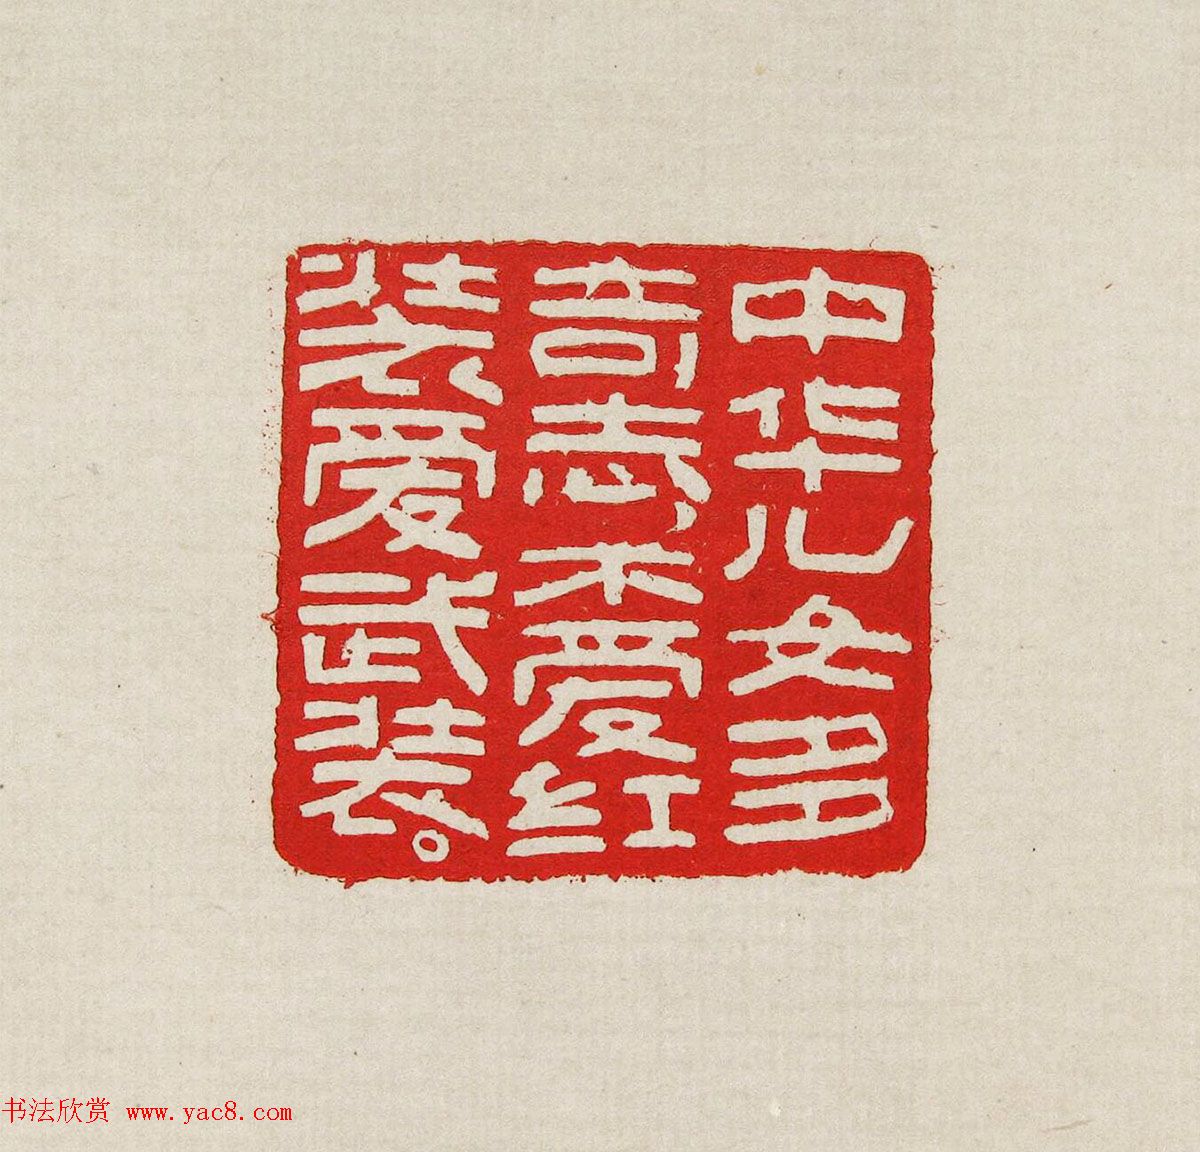 中华儿女多
奇志，不爱红
装爱武装。
书法欣赏 www.yac8.com